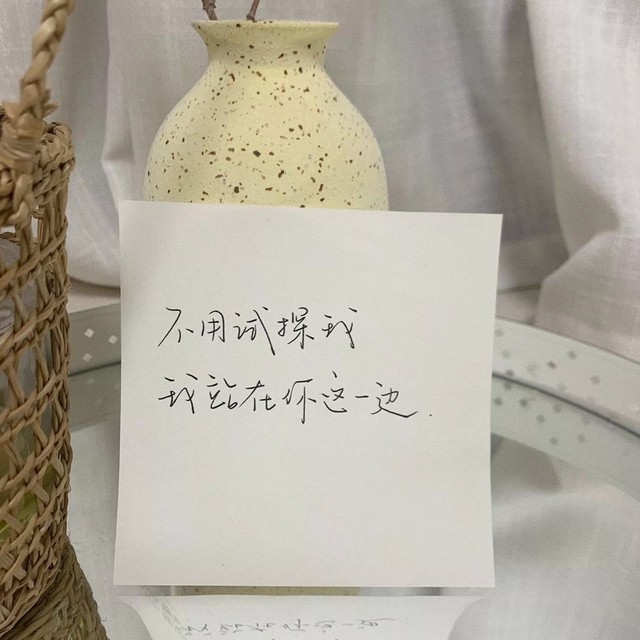 不用试探我
我站在你这一边.